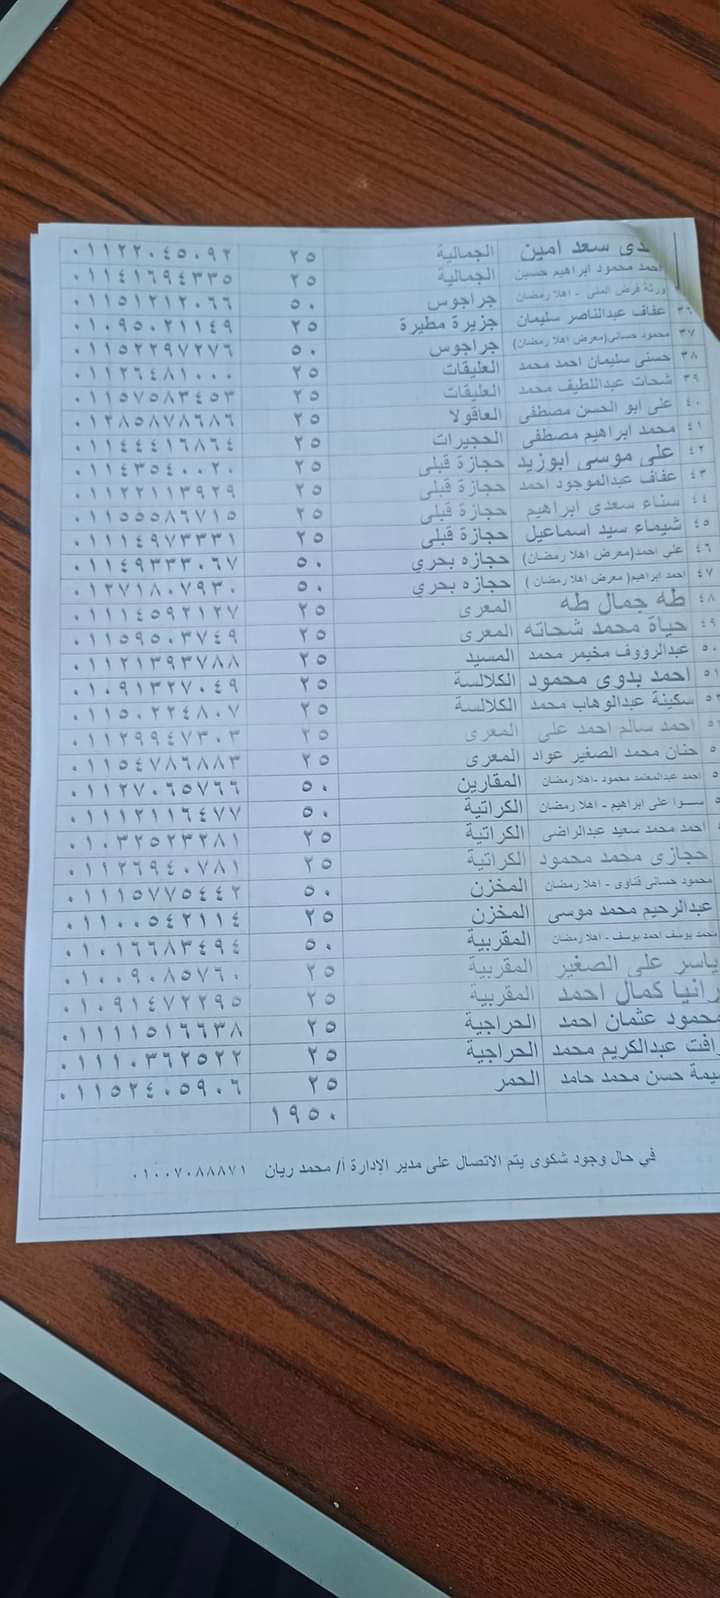 دى سعد امين الجمالية ٢٥ ٠١١٢٢٠٤٥٠٩٢
احمد محمود ابراهيم حسين الجمالية ٢٥ ٠١١٤١٦٩٤٣٣٥
ورثة فرض المنى - اهلا رمضان جراجوس ٥٠ ٠١١٥١٢١٢٠٦٦
٣٦ عفاف عبدالناصر سليمان جزيرة مطيرة ٢٥ ٠١٠٩٥٠٢١١٤٩
٣٧ محمود حسانى(معرض اهلا رمضان) جراجوس ٥٠ ٠١١٥٢٢٩٧٢٧٦
٣٨ حسنى سليمان احمد محمد العليقات ٢٥ ٠١١٢٦٤٨١٠٠٠
٣٩ شحات عبداللطيف محمد العليقات ٢٥ ٠١١٥٧٥٨٣٤٥٣
٤٠ على ابو الحسن مصطفى العاقولا ٢٥ ٠١٢٨٥٨٧٨٦٨٦
٤١ محمد ابراهيم مصطفى الحجيرات ٢٥ ٠١١٤٤٤١٦٨٦٤
٤٢ على موسى ابوزيد حجازة قبلى ٢٥ ٠١١٤٣٥٤٠٠٢٠
٤٣ عفاف عبدالموجود احمد حجازة قبلى ٢٥ ٠١١٢٢١١٣٩٢٩
٤٤ سناء سعدى ابراهيم حجازة قبلى ٢٥ ٠١١٥٥٥٨٦٧١٥
٤٥ شيماء سيد اسماعيل حجازة قبلى ٢٥ ٠١١١٤٩٧٣٣٣١
٤٦ على احمد(معرض اهلا رمضان) حجازه بحري ٥٠ ٠١١٤٩٣٣٣٠٦٧
٤٧ احمد ابراهيم( معرض اهلا رمضان ) حجازه بحري ٥٠ ٠١٢٧١٨٠٧٩٣٠
٤٨ طه جمال طه المعرى ٢٥ ٠١١١٤٥٩٢١٢٧
٤٩ حياة محمد شحاته المعرى ٢٥ ٠١١٥٩٥٠٣٧٤٩
٥٠ عبدالرووف مخيمر محمد المسيد ٢٥ ٠١١٢١٣٩٣٧٨٨
٥١ احمد بدوى محمود الكلالسة ٢٥ ٠١٠٩١٣٢٧٠٤٩
سكينة عبدالوهاب محمد الكلالسة ٢٥ ٠١١٥٠٢٢٤٨٠٧
احمد سالم احمد على المعرى ٢٥ ٠١١٢٩٩٤٧٣٠٣
حنان محمد الصغير عواد المعرى ٢٥ ٠١١٥٤٧٨٦٨٨٣
احمد عبدالمعتمد محمود -اهلا رمضان المقارين ٥٠ ٠١١٢٧٠٦٥٧٦٦
على ابراهيم - اهلا رمضان الكراتية ٥٠ ٠١١١٢١١٦٤٧٧
احمد محمد سعيد عبدالراضى الكراتية ٢٥ ٠١٠٣٢٥٢٣٢٨١
حجازى محمد محمود الكراتية ٢٥ ٠١١٢٦٩٤٠٧٨١
محمود حسانى قناوى - اهلا رمضان المخزن ٥٠ ٠١١١٥٧٧٥٤٤٢
عبدالرحيم محمد موسى المخزن ٢٥ ٠١١٠٠٥٤٢١١٤
محمد يوسف احمد يوسف - اهلا رمضان المقربية ٥٠ ٠١٠١٦٦٨٣٤٩٤
ياسر على الصغير المقربية ٢٥ ٠١٠٠٩٠٨٥٧٦٠
رانيا كمال احمد المقربية ٢٥ ٠١٠٩١٤٧٢٢٩٥
محمود عثمان احمد الحراجية ٢٥ ٠١١١١٥١٦٦٣٨
رافت عبدالكريم محمد الحراجية ٢٥ ٠١١١٠٣٦٢٥٢٢
يمة حسن محمد حامد الحمر ٢٥ ٠١١٥٢٤٠٥٩٠٦
١٩٥٠
في حال وجود شكوى يتم الاتصال على مدير الإدارة أ/ محمد ريان ٠١٠٠٧٠٨٨٨٧١